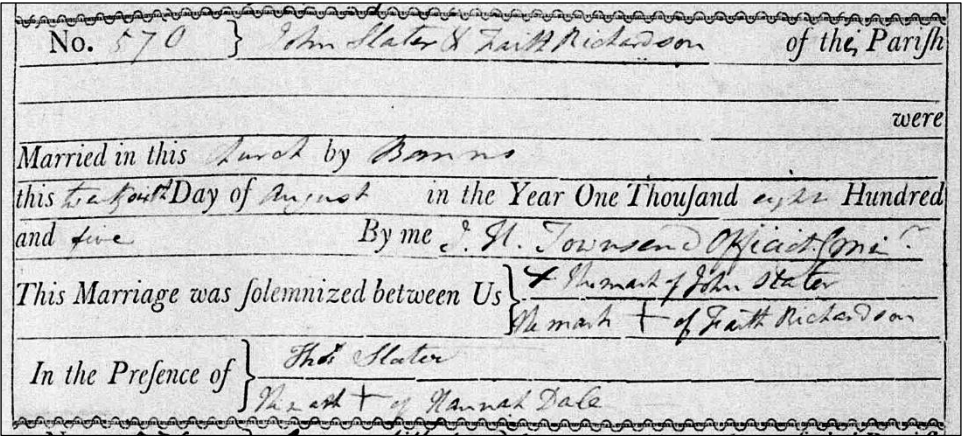 No. 570 } John Slater & Faith Richardson of the Pariſh
were
Married in this Church by Banns
this Day of August in the Year One Thouſand eight Hundred
and five By me J. H. Townsend
This Marriage was ſolemnized between Us } X The mark of John Slater
The mark + of Faith Richardson
In the Preſence of } Thos Slater
The mark + of Hannah Dale